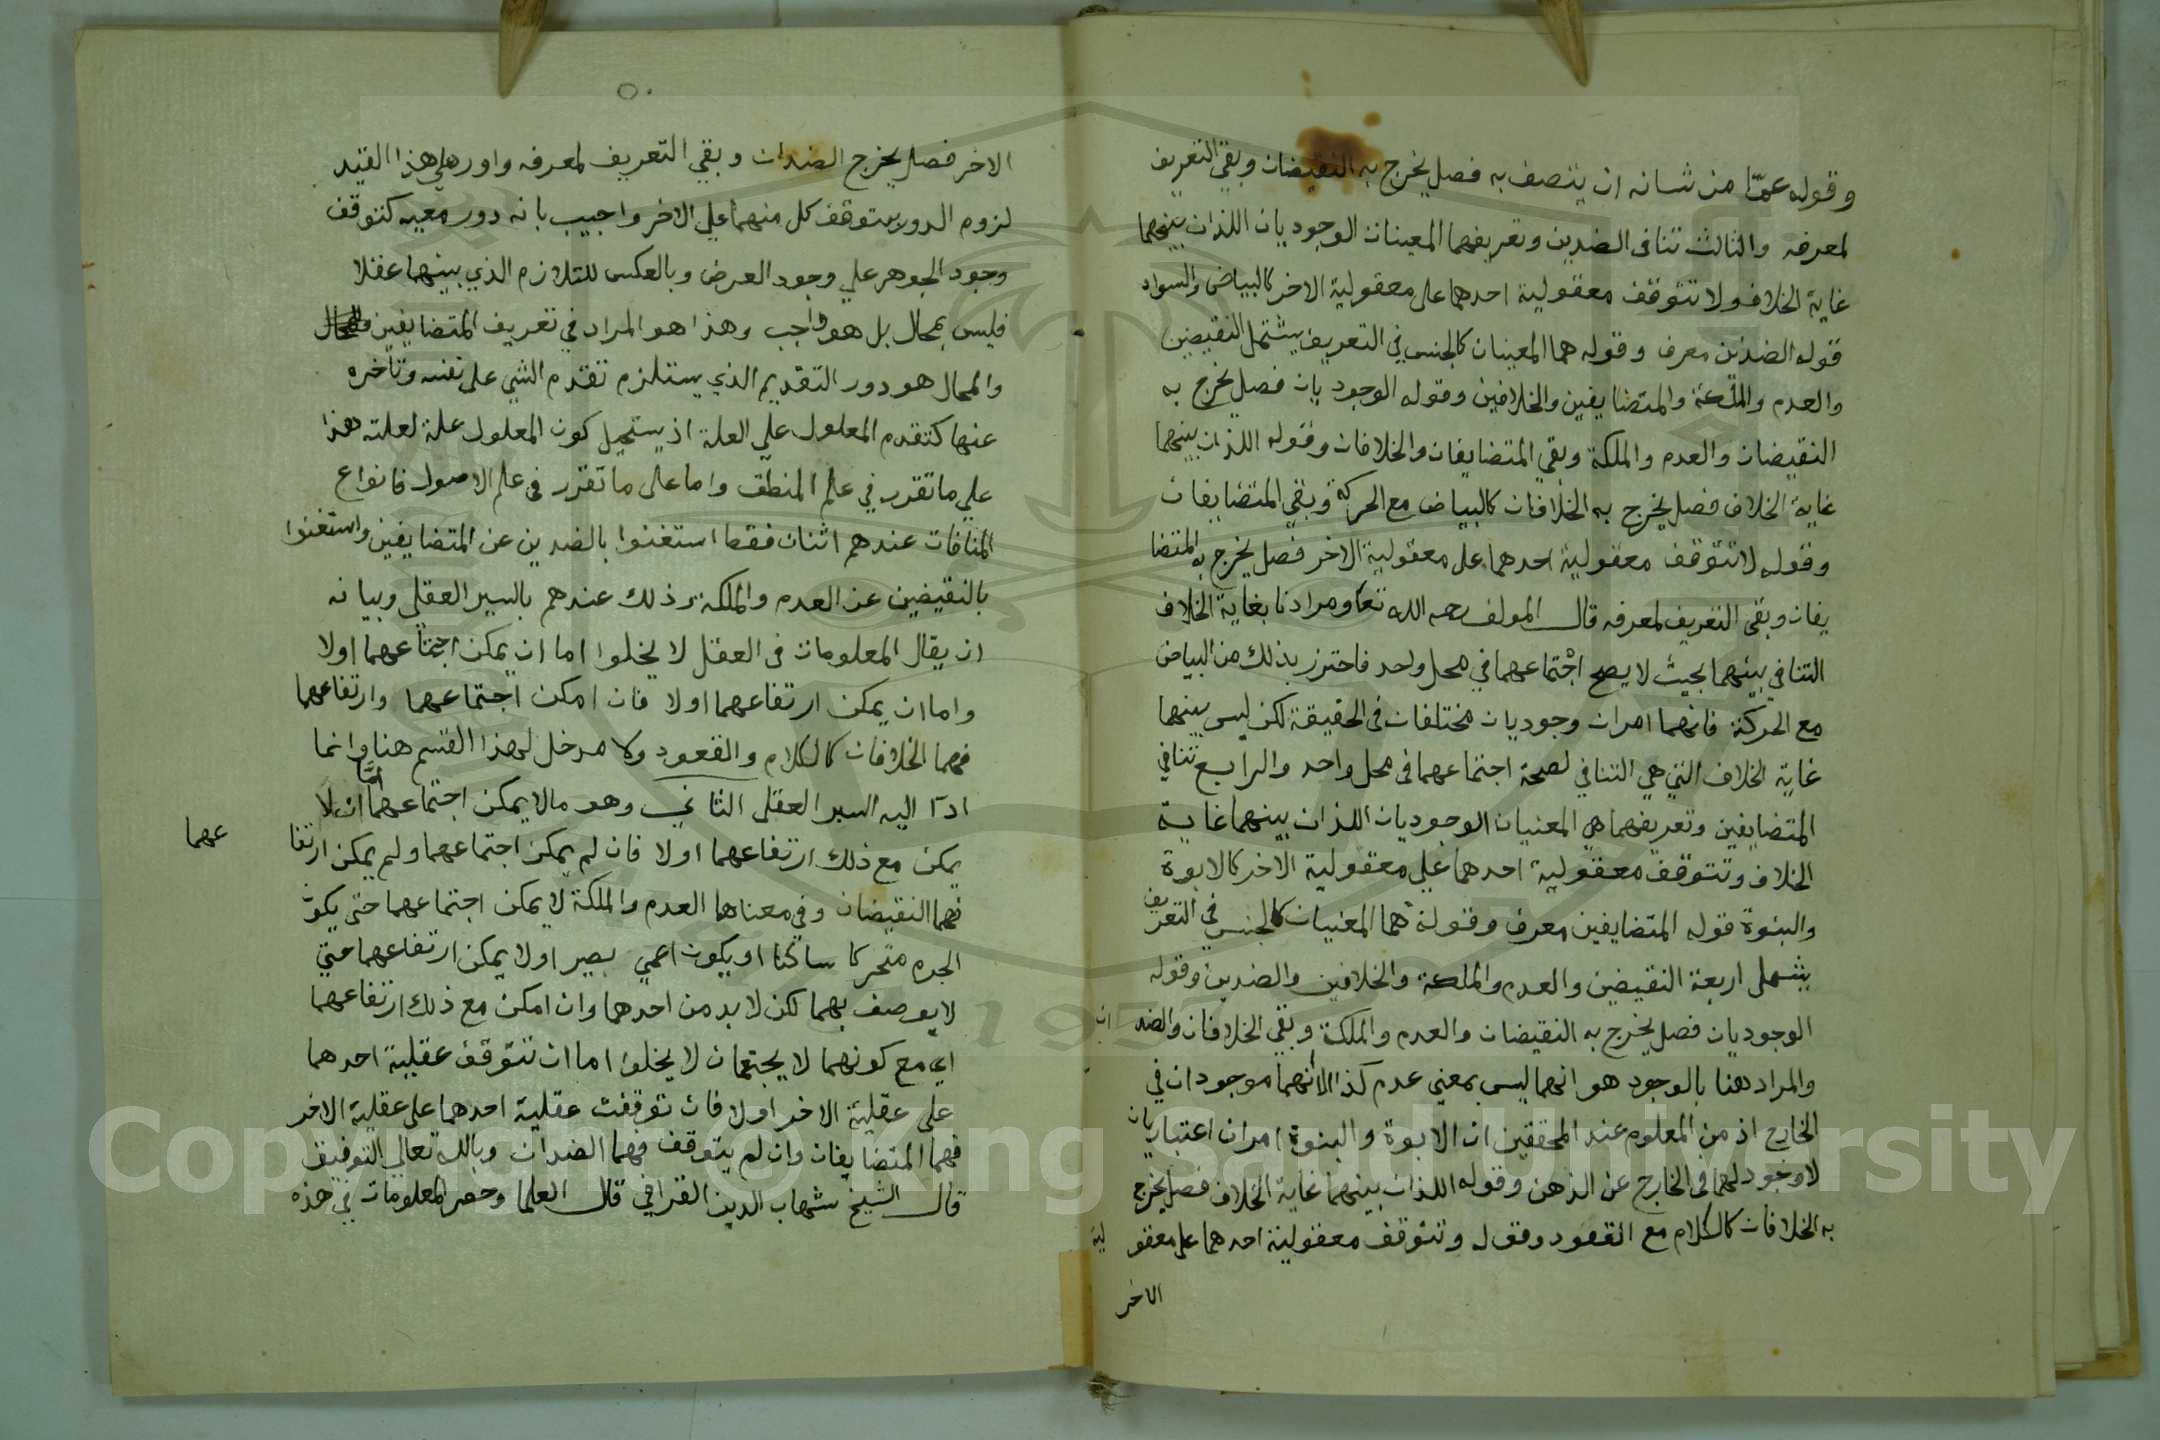 وقوله عمّا من شانه ان يتصف به فصل يخرج به النقيضان وبقي التعريف
لمعرفه والثالث تنافي الضدين وتعريفهما المعينان الوجوديان اللذان بينهما
غاية الخلاف ولا تتوقف معقولية احدهما على معقولية الاخر كالبياض والسواد
قوله الضدين معرف وقوله هما المعينان كالجنس في التعريف يشتمل النقيضين
والعدم والملكة والمتضايفين والخلافين وقوله الوجوديان فصل يخرج به
النقيضان والعدم والملكة وبقي المتضايفان والخلافان وقوله اللذان بينهما
غاية الخلاف فصل يخرج به الخلافان كالبياض مع الحركة وبقي المتضايفان
وقوله لا تتوقف معقولية احدهما على معقولية الاخر فصل يخرج به المتضا
يفان وبقي التعريف لمعرفه قال المولف رحمه الله تعا ومرادنا بغاية الخلاف
التنافي بينهما بحيث لا يصح اجتماعهما في محل واحد فاحترز بذلك من البياض
مع الحركة فانهما امران وجوديان مختلفان في الحقيقة لكن ليس بينهما
غاية الخلاف التي هي التنافي لصحة اجتماعهما في محل واحد والرابع تنافي
المتضايفين وتعريفهما هي المعنيان الوجوديان اللذان بينهما غاية
الخلاف وتتوقف معقولية احدهما علي معقولية الاخر كالابوة
والبنوة قوله المتضايفين معرف وقوله هما المعنيان كالجنس في التعريف
يشمل اربعة النقيضين والعدم والملكة والخلافين والضدين وقوله
الوجوديان فصل يخرج به النقيضان والعدم والملكة وبقي الخلافان والضد ان
والمراد هنا بالوجود هو انهما ليس بمعني عدم كذا لا انهما موجودان في
الخارج اذ من المعلوم عند المحققين ان الابوة والبنوة امران اعتباريان
لا وجود لهما في الخارج عن الذهن وقوله اللذان بينهما غاية الخلاف فصل يخرج
به الخلافان كالكلام مع القعود وقول وتتوقف معقولية احدهما على معقو لية
الاخر
٥٠
الاخر فصل يخرج الضدان وبقي التعريف لمعرفه واورد علي هذا القيد
لزوم الدور بتوقف كل منهما علي الاخر واجيب بانه دور معيه كتوقف
وجود الجوهر علي وجود العرض وبالعكس للتلازم الذي بينهما عقلا
فليس بمحال بل هو واجب وهذا هو المراد في تعريف المتضايفين
والمحال هو دور التقديم الذي يستلزم تقدم الشي على نفسه وتاخره
عنها كتقدم المعلول علي العلة اذ يستحيل كون المعلول علة لعلته هذا
علي ما تقرر في علم المنطق واما على ما تقرر في علم الاصول فانواع
المنافات عندهم اثنان فقط استغنوا بالضدين عن المتضايفين واستغنوا
بالنقيضين عن العدم والملكة وذلك عندهم بالسبر العقلي وبيانه
ان يقال المعلومان في العقل لا يخلوا اما ان يمكن اجتماعهما اولا
واما ان يمكن ارتفاعهما اولا فان امكن اجتماعهما وارتفاعهما
فهما الخلافان كالكلام والقعود ولا مدخل لهذا القسم هنا وانما
ادآ اليه السبر العقلي الثاني وهو ما لا يمكن اجتماعهما امّا ان لا
يمكن مع ذلك ارتفاعهما اولا فان لم يمكن اجتماعهما ولم يمكن ارتفا عهما
فهما النقيضان وفي معناهما العدم والملكة لا يمكن اجتماعهما حتي يكون
الجرم متحركا ساكنا او يكون اعمي بصير اولا يمكن ارتفاعهما حتي
لا يوصف بهما لكن لا بد من احدهما وان امكن مع ذلك ارتفاعهما
اي مع كونهما لا يجتمعان لا يخلوا اما ان تتوقف عقلية احدهما
على عقلية الاخر اولا فان توقفت عقلية احدهما على عقلية الاخر
فهما المتضايفان وان لم يتوقف فهما الضدان وبالله تعالي التوفيق
قال الشيخ شهاب الدين القرافي قال العلما وحصر المعلومات في هذه
Copyright © King Saud University